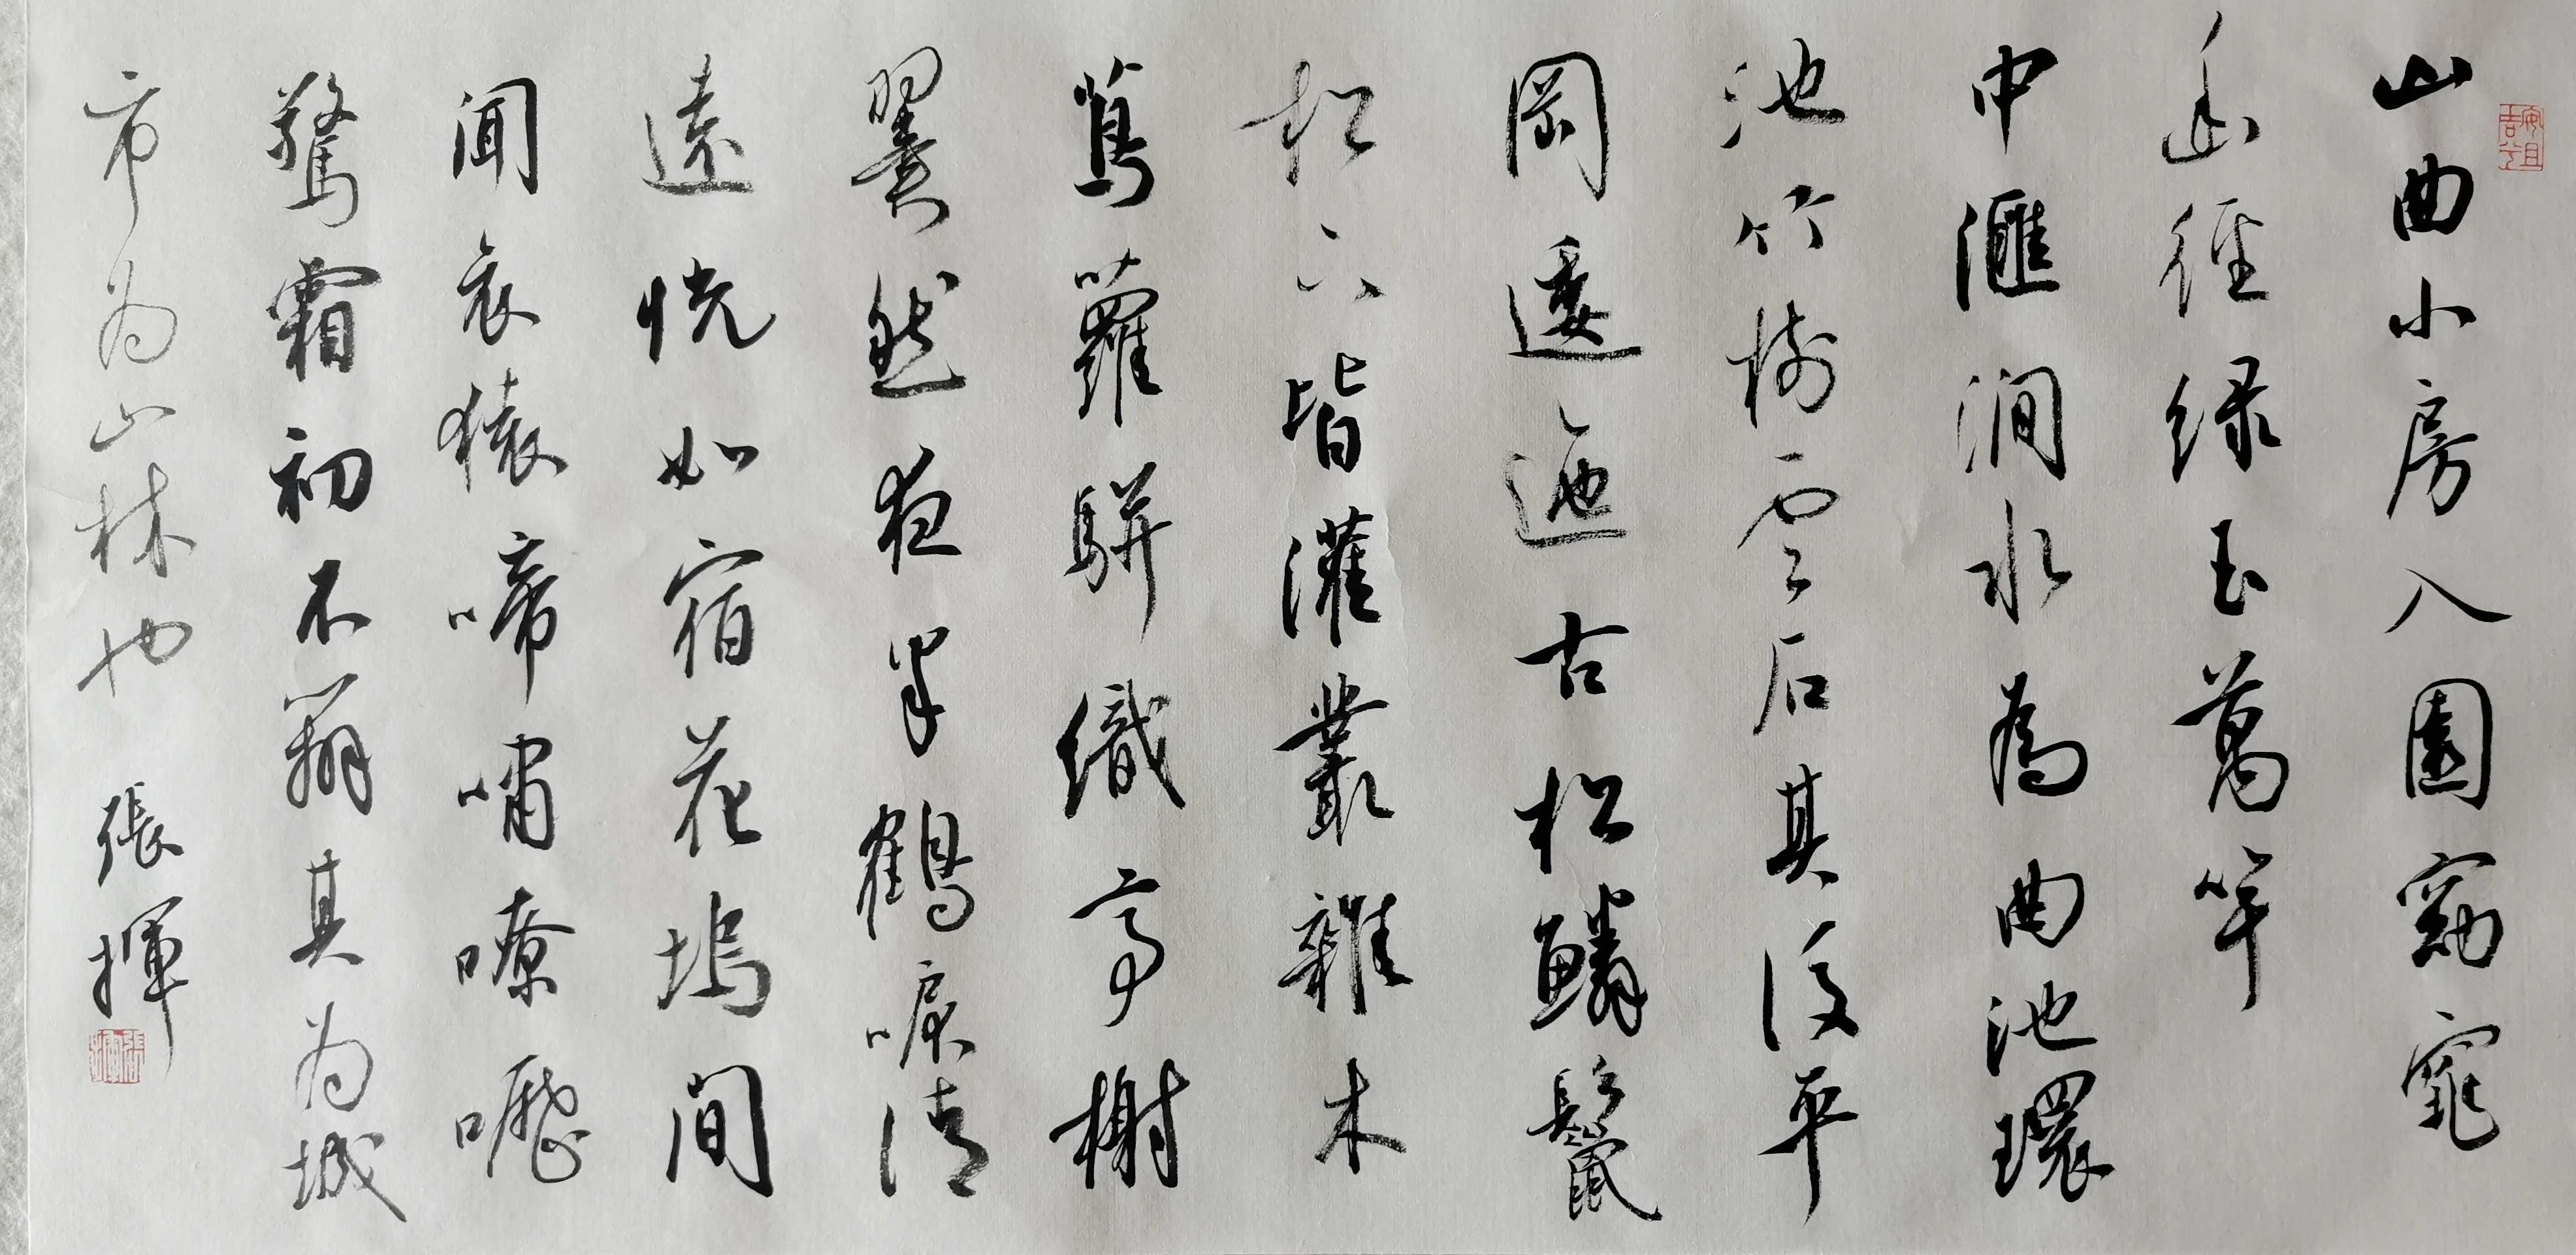 山曲小房入園窈窕
幽徑绿玉萬竿
中匯澗水為曲池環
池竹樹雲石其後平
岡逶迤古松鱗鬣
松下皆灌叢雜木
蔦蘿駢織亭榭
翼然夜半鶴唳清
遠恍如宿花塢間
聞哀猿啼嘯嘹嚦
驚霜初不辨其为城
市为山林也 張揮